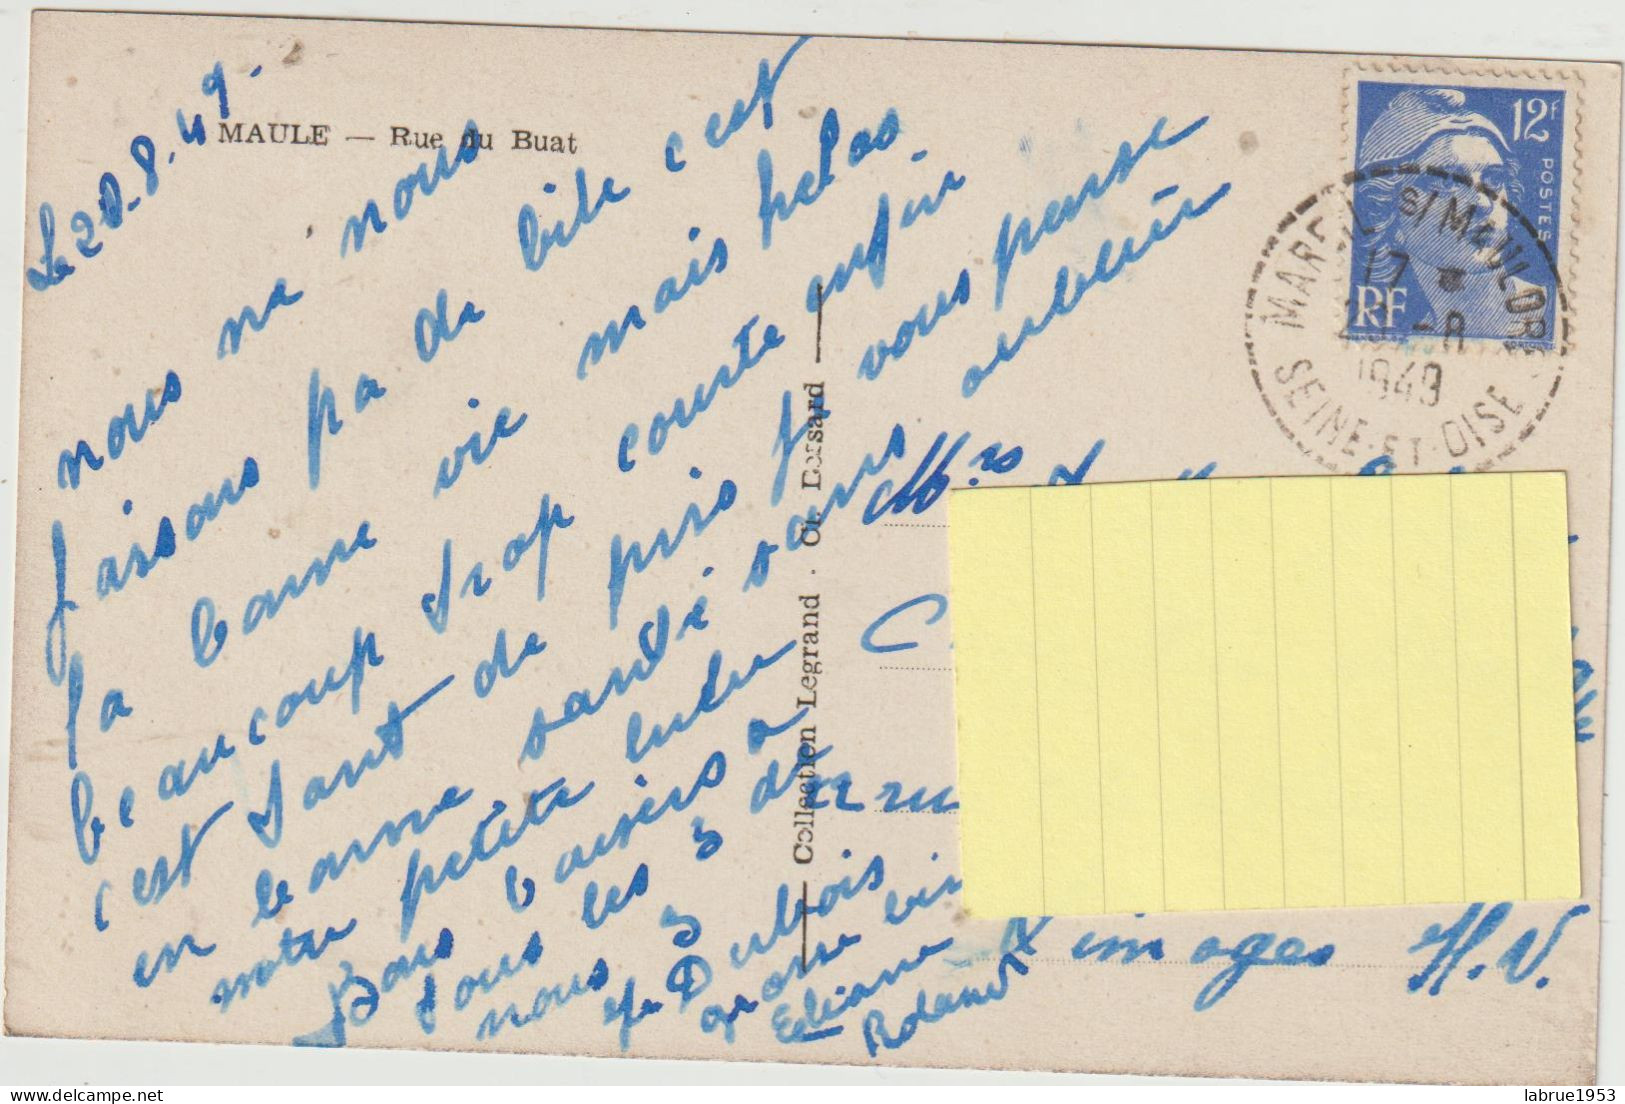 MAULE — Rue du Buat
Le 20.8.49.
nous ne nous
faisons pa de bile c'est
la bonne vie mais helas
beaucoup trop courte enfin
c'est tant de pris je vous pense
en bonne santé sans oublier
notre petite lulu
Bons baisers a
tous les 3 de
nous 3
Dubois
grosse
Eliane
Roland
Collection Legrand · Cl. Dorsard
Mrs
C
&
images H.V.
12F
POSTES
RF
MAREIL S/MAULDRE
17
-8
1949
SEINE-ET-OISE
delcampe.net
labrue1953